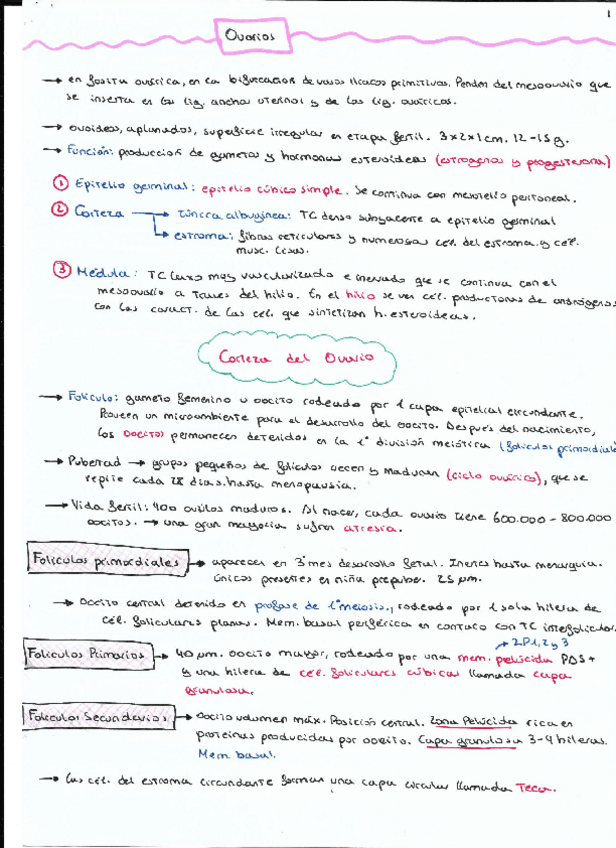 1
Ovarios
→ en fosita ovárica, en la bifurcacion de vasos iliacos primitivos. Penden del mesoovario que
se inserta en los lig. anchos uterinos y de los lig. ováricos.
→ ovoideos, aplanados, superficie irregular en etapa fertil. 3x2x1cm. 12-15g.
→ Función: produccion de gametos y hormonas esteroideas (estrogenos y progesterona)
① Epitelio germinal: epitelio cúbico simple. Se continua con mesotelio peritoneal.
② Corteza → túnica albugínea: TC denso subyacente a epitelio germinal
estroma: fibras reticulares y numerosas cél. del estroma y cél.
musc. lisas.
③ Médula: TC laxo muy vascularizado e inervado que se continua con el
mesoovario a traves del hilio. En el hilio se ven cél. productoras de andrógenos
con las caract. de las cél. que sintetizan h. esteroideas.
Corteza del Ovario
→ Foliculo: gameto femenino u oocito rodeado por 1 capa epitelial circundante.
Proveen un microambiente para el desarrollo del oocito. Después del nacimiento,
los oocitos permanecen detenidos en la 1ª división meiótica (foliculos primordiale
→ Pubertad → grupos pequeños de foliculos crecen y maduran (ciclo ovárico), que se
repite cada 28 dias hasta menopausia.
→ Vida fertil: 400 ovulos maduros. Al nacer, cada ovario tiene 600.000 - 800.000
oocitos. → una gran mayoria sufren atresia.
Foliculos primordiales → aparecen en 3er mes desarrollo fetal. Inertes hasta menarquia.
únicos presentes en niña prepuber. 25 μm.
→ Oocito central detenido en profase de 1ª meiosis, rodeado por 1 sola hilera de
cél. foliculares planas. Mem. basal periférica en contacto con TC interfolicular
→ ZP1, 2 y 3
Foliculos Primarios → 40 μm. oocito mayor, rodeado por una mem. pelúcida PAS+
y una hilera de cél. foliculares cúbicas llamada capa
granulosa.
Foliculos Secundarios → Oocito volumen máx. Posición central. Zona Pelúcida rica en
proteinas producidas por oocito. Capa granulosa 3-4 hileras.
Mem basal.
→ Las cél. del estroma circundante forman una capa circular llamada Teca.